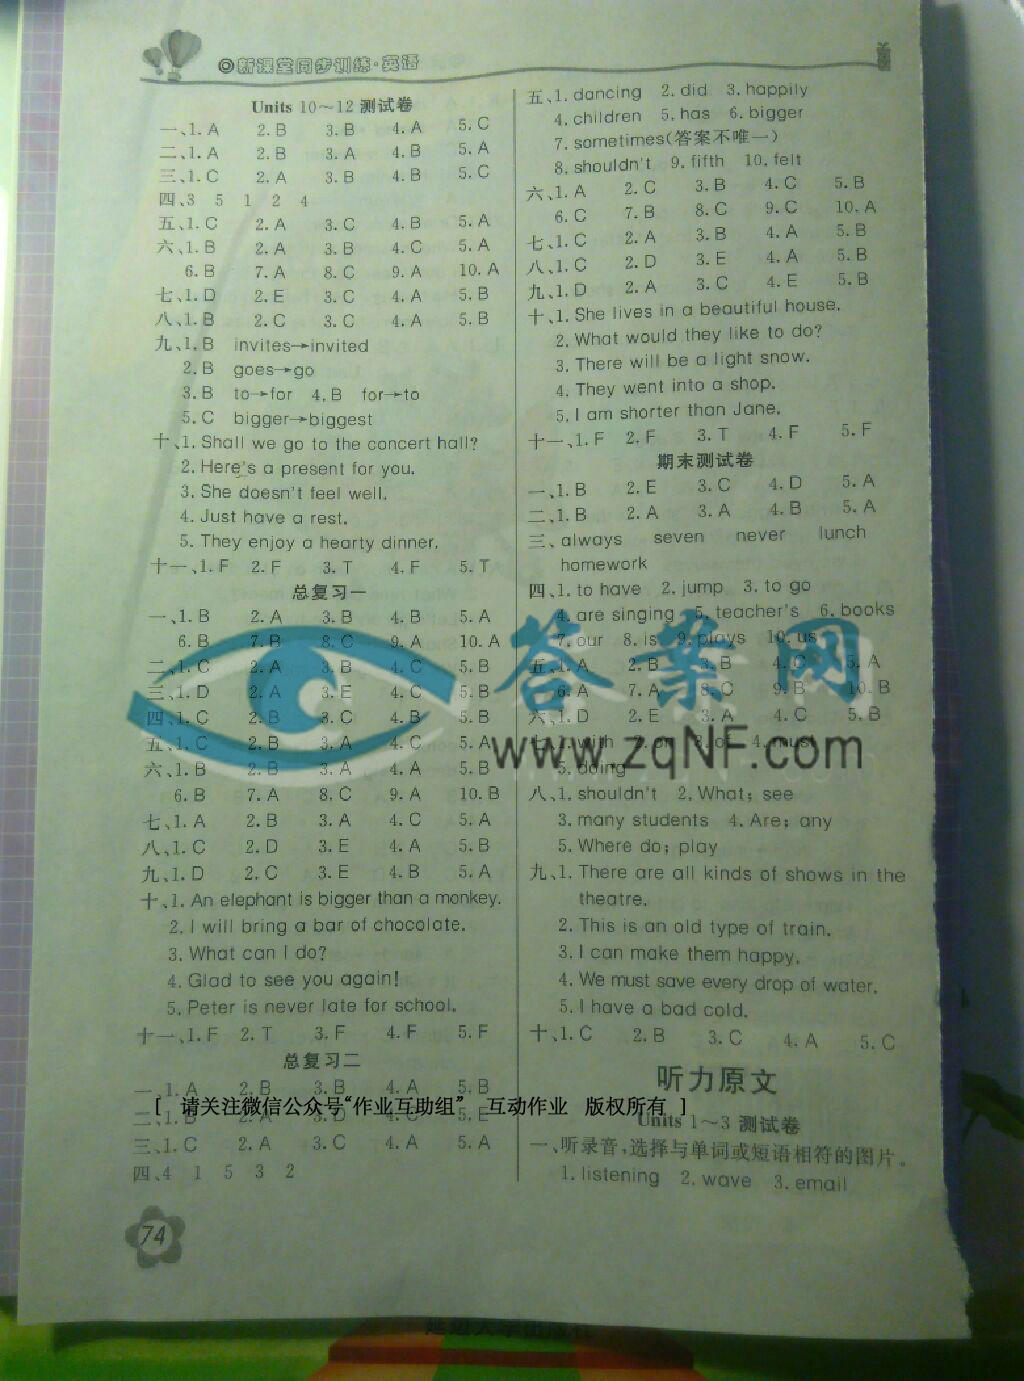 新课堂同步训练·英语
Units 10～12 测试卷
一、1. A 2. B 3. B 4. A 5. C
二、1. A 2. B 3. A 4. B 5. A
三、1. C 2. A 3. B 4. B 5. C
四、3 5 1 2 4
五、1. C 2. A 3. C 4. B 5. A
六、1. B 2. A 3. B 4. C 5. A
6. B 7. A 8. C 9. A 10. A
七、1. D 2. E 3. C 4. A 5. B
八、1. B 2. C 3. C 4. A 5. B
九、1. B invites→invited
2. B goes→go
3. B to→for 4. B for→to
5. C bigger→biggest
十、1. Shall we go to the concert hall?
2. Here's a present for you.
3. She doesn't feel well.
4. Just have a rest.
5. They enjoy a hearty dinner.
十一、1. F 2. F 3. T 4. F 5. T
总复习一
一、1. B 2. A 3. B 4. B 5. A
6. B 7. B 8. C 9. A 10. A
二、1. C 2. A 3. B 4. C 5. B
三、1. D 2. A 3. E 4. C 5. B
四、1. C 2. B 3. C 4. B 5. B
五、1. C 2. B 3. A 4. C 5. A
六、1. B 2. B 3. A 4. A 5. B
6. B 7. A 8. C 9. A 10. B
七、1. A 2. B 3. A 4. C 5. A
八、1. C 2. D 3. E 4. A 5. B
九、1. D 2. C 3. E 4. B 5. A
十、1. An elephant is bigger than a monkey.
2. I will bring a bar of chocolate.
3. What can I do?
4. Glad to see you again!
5. Peter is never late for school.
十一、1. F 2. T 3. F 4. F 5. F
总复习二
一、1. A 2. B 3. B 4. A 5. B
[ 请关注微信公众号“作业互助组” 互动作业 版权所有 ]
三、1. C 2. A 3. A 4. A 5. A
四、4 1 5 3 2
74
五、1. dancing 2. did 3. happily
4. children 5. has 6. bigger
7. sometimes(答案不唯一)
8. shouldn't 9. fifth 10. felt
六、1. A 2. C 3. B 4. C 5. B
6. C 7. B 8. C 9. C 10. A
七、1. C 2. A 3. B 4. A 5. B
八、1. C 2. D 3. E 4. A 5. B
九、1. D 2. A 3. C 4. E 5. B
十、1. She lives in a beautiful house.
2. What would they like to do?
3. There will be a light snow.
4. They went into a shop.
5. I am shorter than Jane.
十一、1. F 2. F 3. T 4. F 5. F
期末测试卷
一、1. B 2. E 3. C 4. D 5. A
二、1. B 2. A 3. A 4. B 5. A
三、always seven never lunch
homework
四、1. to have 2. jump 3. to go
4. are singing 5. teacher's 6. books
7. our 8. is 9. plays 10. us
五、1. A 2. B 3. B 4. C 5. A
6. A 7. A 8. C 9. B 10. B
六、1. D 2. E 3. A 4. C 5. B
七、1. with 2. on 3. of 4. must
5. doing
八、1. shouldn't 2. What; see
3. many students 4. Are; any
5. Where do; play
九、1. There are all kinds of shows in the
theatre.
2. This is an old type of train.
3. I can make them happy.
4. We must save every drop of water.
5. I have a bad cold.
十、1. C 2. B 3. C 4. A 5. C
听力原文
Units 1～3 测试卷
一、听录音,选择与单词或短语相符的图片。
1. listening 2. wave 3. email
答案网
www.zqNF.com